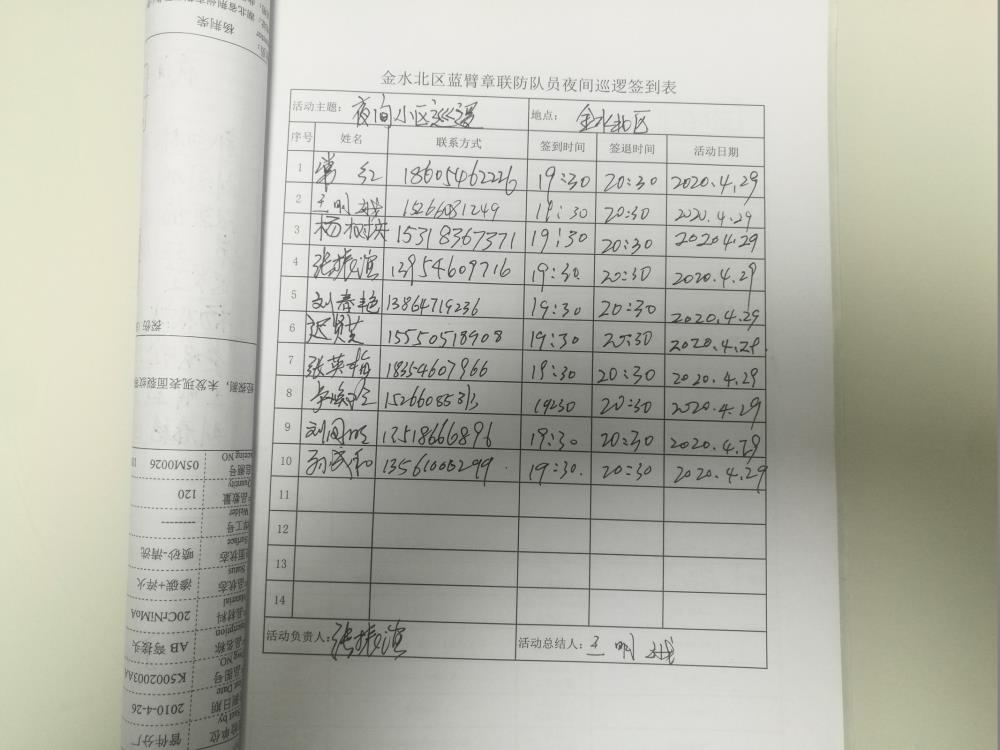 金水北区蓝臂章联防队员夜间巡逻签到表
活动主题: 夜间小区巡逻 地点: 金水北区
序号 姓名 联系方式 签到时间 签退时间 活动日期
1 常红 18605462226 19:30 20:30 2020.4.29
2 王明 15266081249 19:30 20:30 2020.4.29
3 杨树 15318367371 19:30 20:30 2020 4.29
4 张振滨 13954609716 19:30 20:30 2020.4.29
5 刘春艳 13864719236 19:30 20:30 2020.4.29
6 迟贤芝 15550518908 19:30 20:30 2020.4.29.
7 张英梅 18354607966 19:30 20:30 2020.4.29
8 152660853 19230 20:30 2020.4.29
9 刘国 13518666896 19:30 20:30 2020.4.29
10 孙 13561000299. 19:30. 20:30 2020.4.29
11
12
13
14
活动负责人: 张振滨 活动总结人: 王明
杨荆荣
探伤
经探测，未发现表面裂纹
05M0026
120
-------
喷砂-清洗
渗碳+淬火
20CrNiMoA
AB弯接头
K5002003AA
2010-4-26
管件分厂